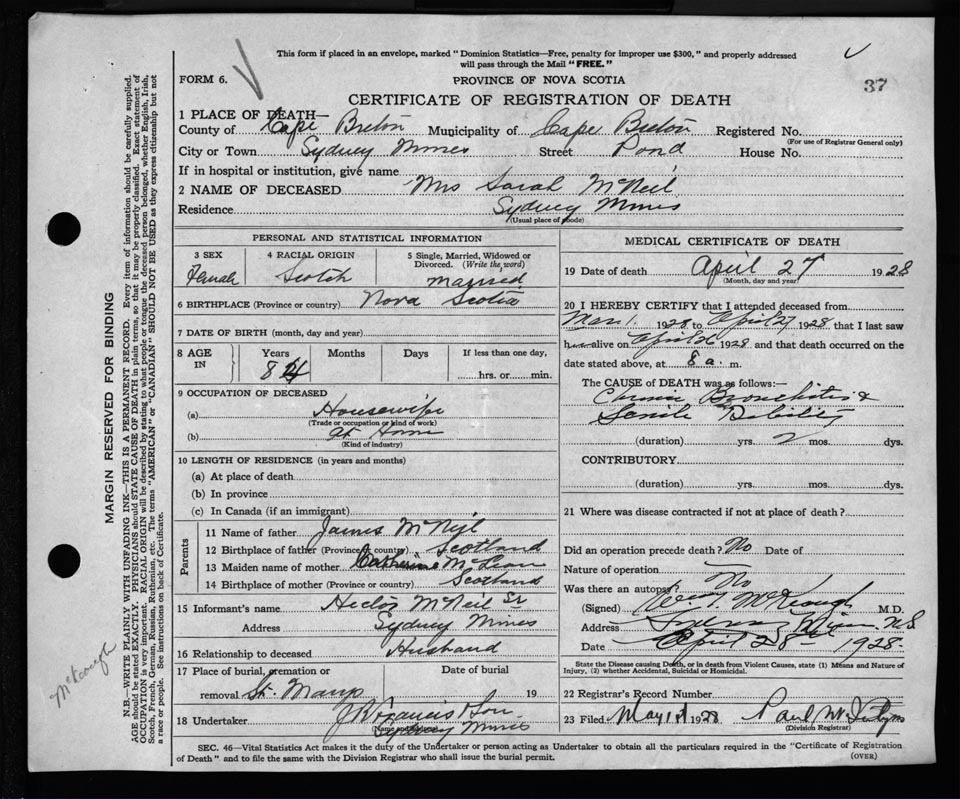 This form if placed in an envelope, marked "Dominion Statistics—Free, penalty for improper use $300," and properly addressed
will pass through the Mail "FREE."
FORM 6.
PROVINCE OF NOVA SCOTIA
37
CERTIFICATE OF REGISTRATION OF DEATH
1 PLACE OF DEATH—
County of Cape Breton Municipality of Cape Breton Registered No.
(For use of Registrar General only)
City or Town Sydney Mines Street Pond House No.
If in hospital or institution, give name
2 NAME OF DECEASED Mrs Sarah McNeil
Residence Sydney Mines
(Usual place of abode)
PERSONAL AND STATISTICAL INFORMATION
3 SEX
Female
4 RACIAL ORIGIN
Scotch
5 Single, Married, Widowed or
Divorced. (Write the word)
married
6 BIRTHPLACE (Province or country) Nova Scotia
7 DATE OF BIRTH (month, day and year)
8 AGE
IN
Years Months Days If less than one day,
84
hrs. or min.
9 OCCUPATION OF DECEASED
(a) Housewife
(Trade or occupation or kind of work)
(b) at Home
(Kind of industry)
10 LENGTH OF RESIDENCE (in years and months)
(a) At place of death
(b) In province
(c) In Canada (if an immigrant)
Parents
11 Name of father James McNeil
12 Birthplace of father (Province or country) Scotland
13 Maiden name of mother Catherine McLean
14 Birthplace of mother (Province or country) Scotland
15 Informant's name Hector McNeil Sr
Address Sydney Mines
16 Relationship to deceased Husband
17 Place of burial, cremation or Date of burial
removal St. Marys 19
18 Undertaker J R Francis & Son
Sydney Mines
MEDICAL CERTIFICATE OF DEATH
19 Date of death April 27 1928
(Month, day and year)
20 I HEREBY CERTIFY that I attended deceased from
Mar 1 1928 to April 27 1928, that I last saw
her alive on April 26 1928 and that death occurred on the
date stated above, at 8 a. m.
The CAUSE of DEATH was as follows:—
Chronic Bronchitis &
Senile Debility
(duration) yrs. 2 mos. dys.
CONTRIBUTORY
(duration) yrs. mos. dys.
21 Where was disease contracted if not at place of death?
Did an operation precede death? No Date of
Nature of operation
Was there an autopsy? No
(Signed) McKeough M.D.
Address Sydney Mines N.S
Date April 28th 1928.
State the Disease causing Death, or in death from Violent Causes, state (1) Means and Nature of
Injury, (2) whether Accidental, Suicidal or Homicidal.
22 Registrar's Record Number
23 Filed May 1st 1928 Paul
(Division Registrar)
SEC. 46—Vital Statistics Act makes it the duty of the Undertaker or person acting as Undertaker to obtain all the particulars required in the "Certificate of Registration
of Death" and to file the same with the Division Registrar who shall issue the burial permit.
(OVER)
MARGIN RESERVED FOR BINDING
N.B.—WRITE PLAINLY WITH UNFADING INK—THIS IS A PERMANENT RECORD. Every item of information should be carefully supplied.
AGE should be stated EXACTLY. PHYSICIANS should STATE CAUSE OF DEATH in plain terms, so that it may be properly classified. Exact statement of
OCCUPATION is very important. RACIAL ORIGIN will be described by stating to what people or tongue the deceased person belonged, whether English, Irish,
Scotch, French, German, Russian, Ruthenian, etc. The terms "AMERICAN" or "CANADIAN" SHOULD NOT BE USED as they express citizenship but not
a race or people. See instructions on back of Certificate.
McKeough